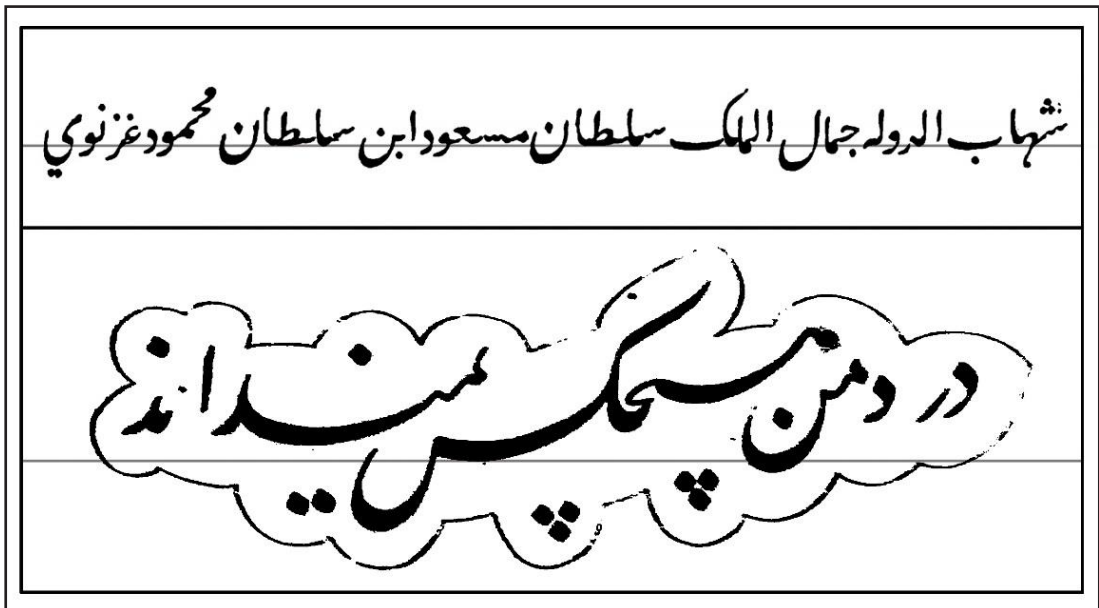 شهاب الدوله جمال الملک سلطان مسعود ابن سلطان محمود غزنوي
درد من هیچکس نمیداند